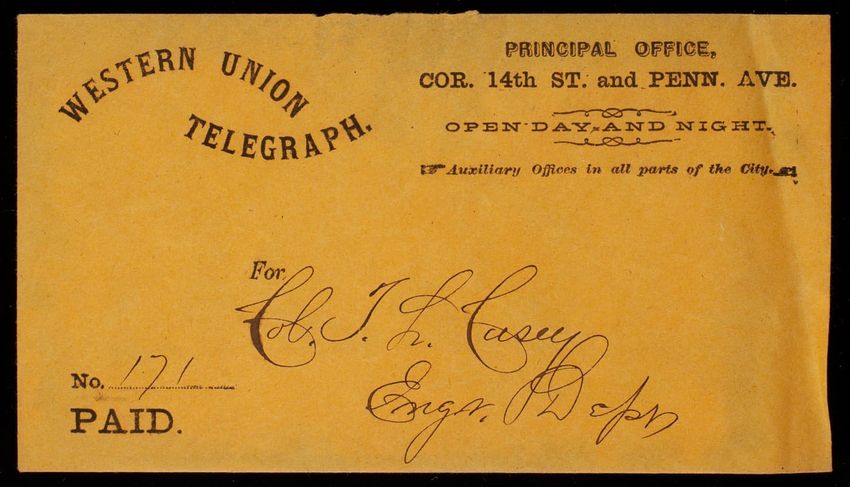 WESTERN UNION
TELEGRAPH.
PRINCIPAL OFFICE,
COR. 14th ST. and PENN. AVE.
OPEN DAY AND NIGHT.
Auxiliary Offices in all parts of the City.
For
Col. T. L. Casey
Engr. Dept
No. 171
PAID.